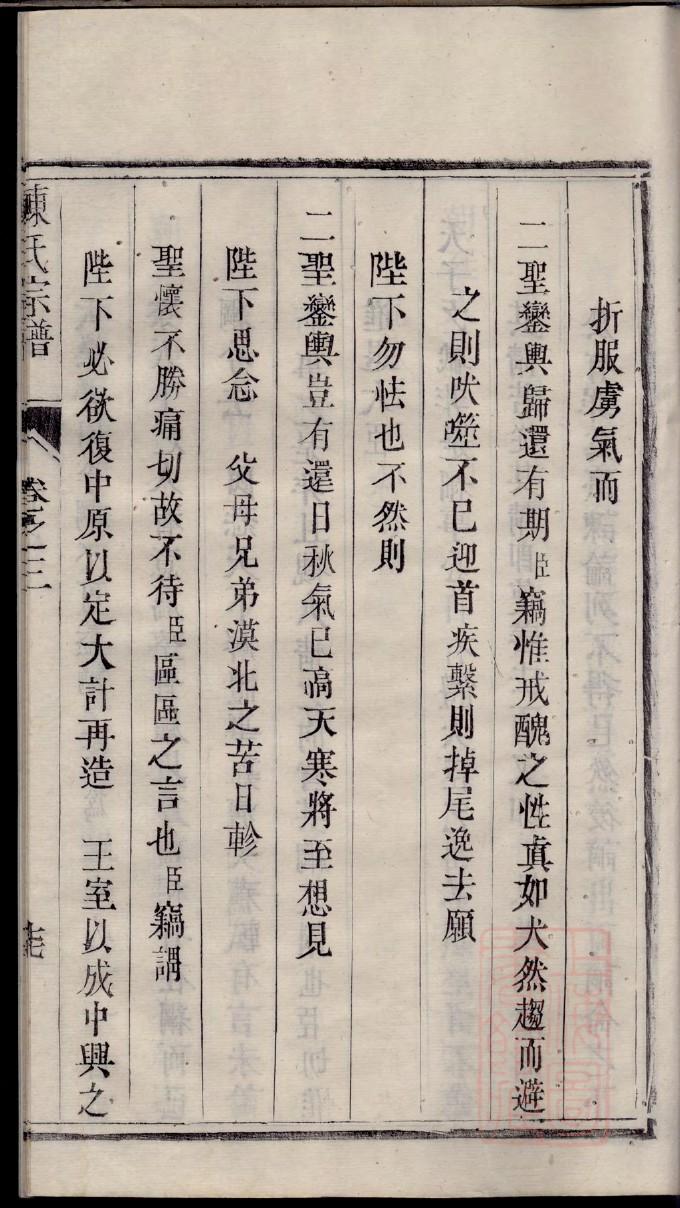 折服虜氣而
二聖鑾輿歸還有期臣竊惟戎醜之性真如犬然趨而避
之則吠噬不已迎首疾繫則掉尾逸去願
陛下勿怯也不然則
二聖鑾輿豈有還日秋氣已高天寒將至想見
陛下思念 父母兄弟漠北之苦日軫
聖懷不勝痛切故不待臣區區之言也臣竊謂
陛下必欲復中原以定大計再造 王室以成中興之
陳氏宗譜 卷之三